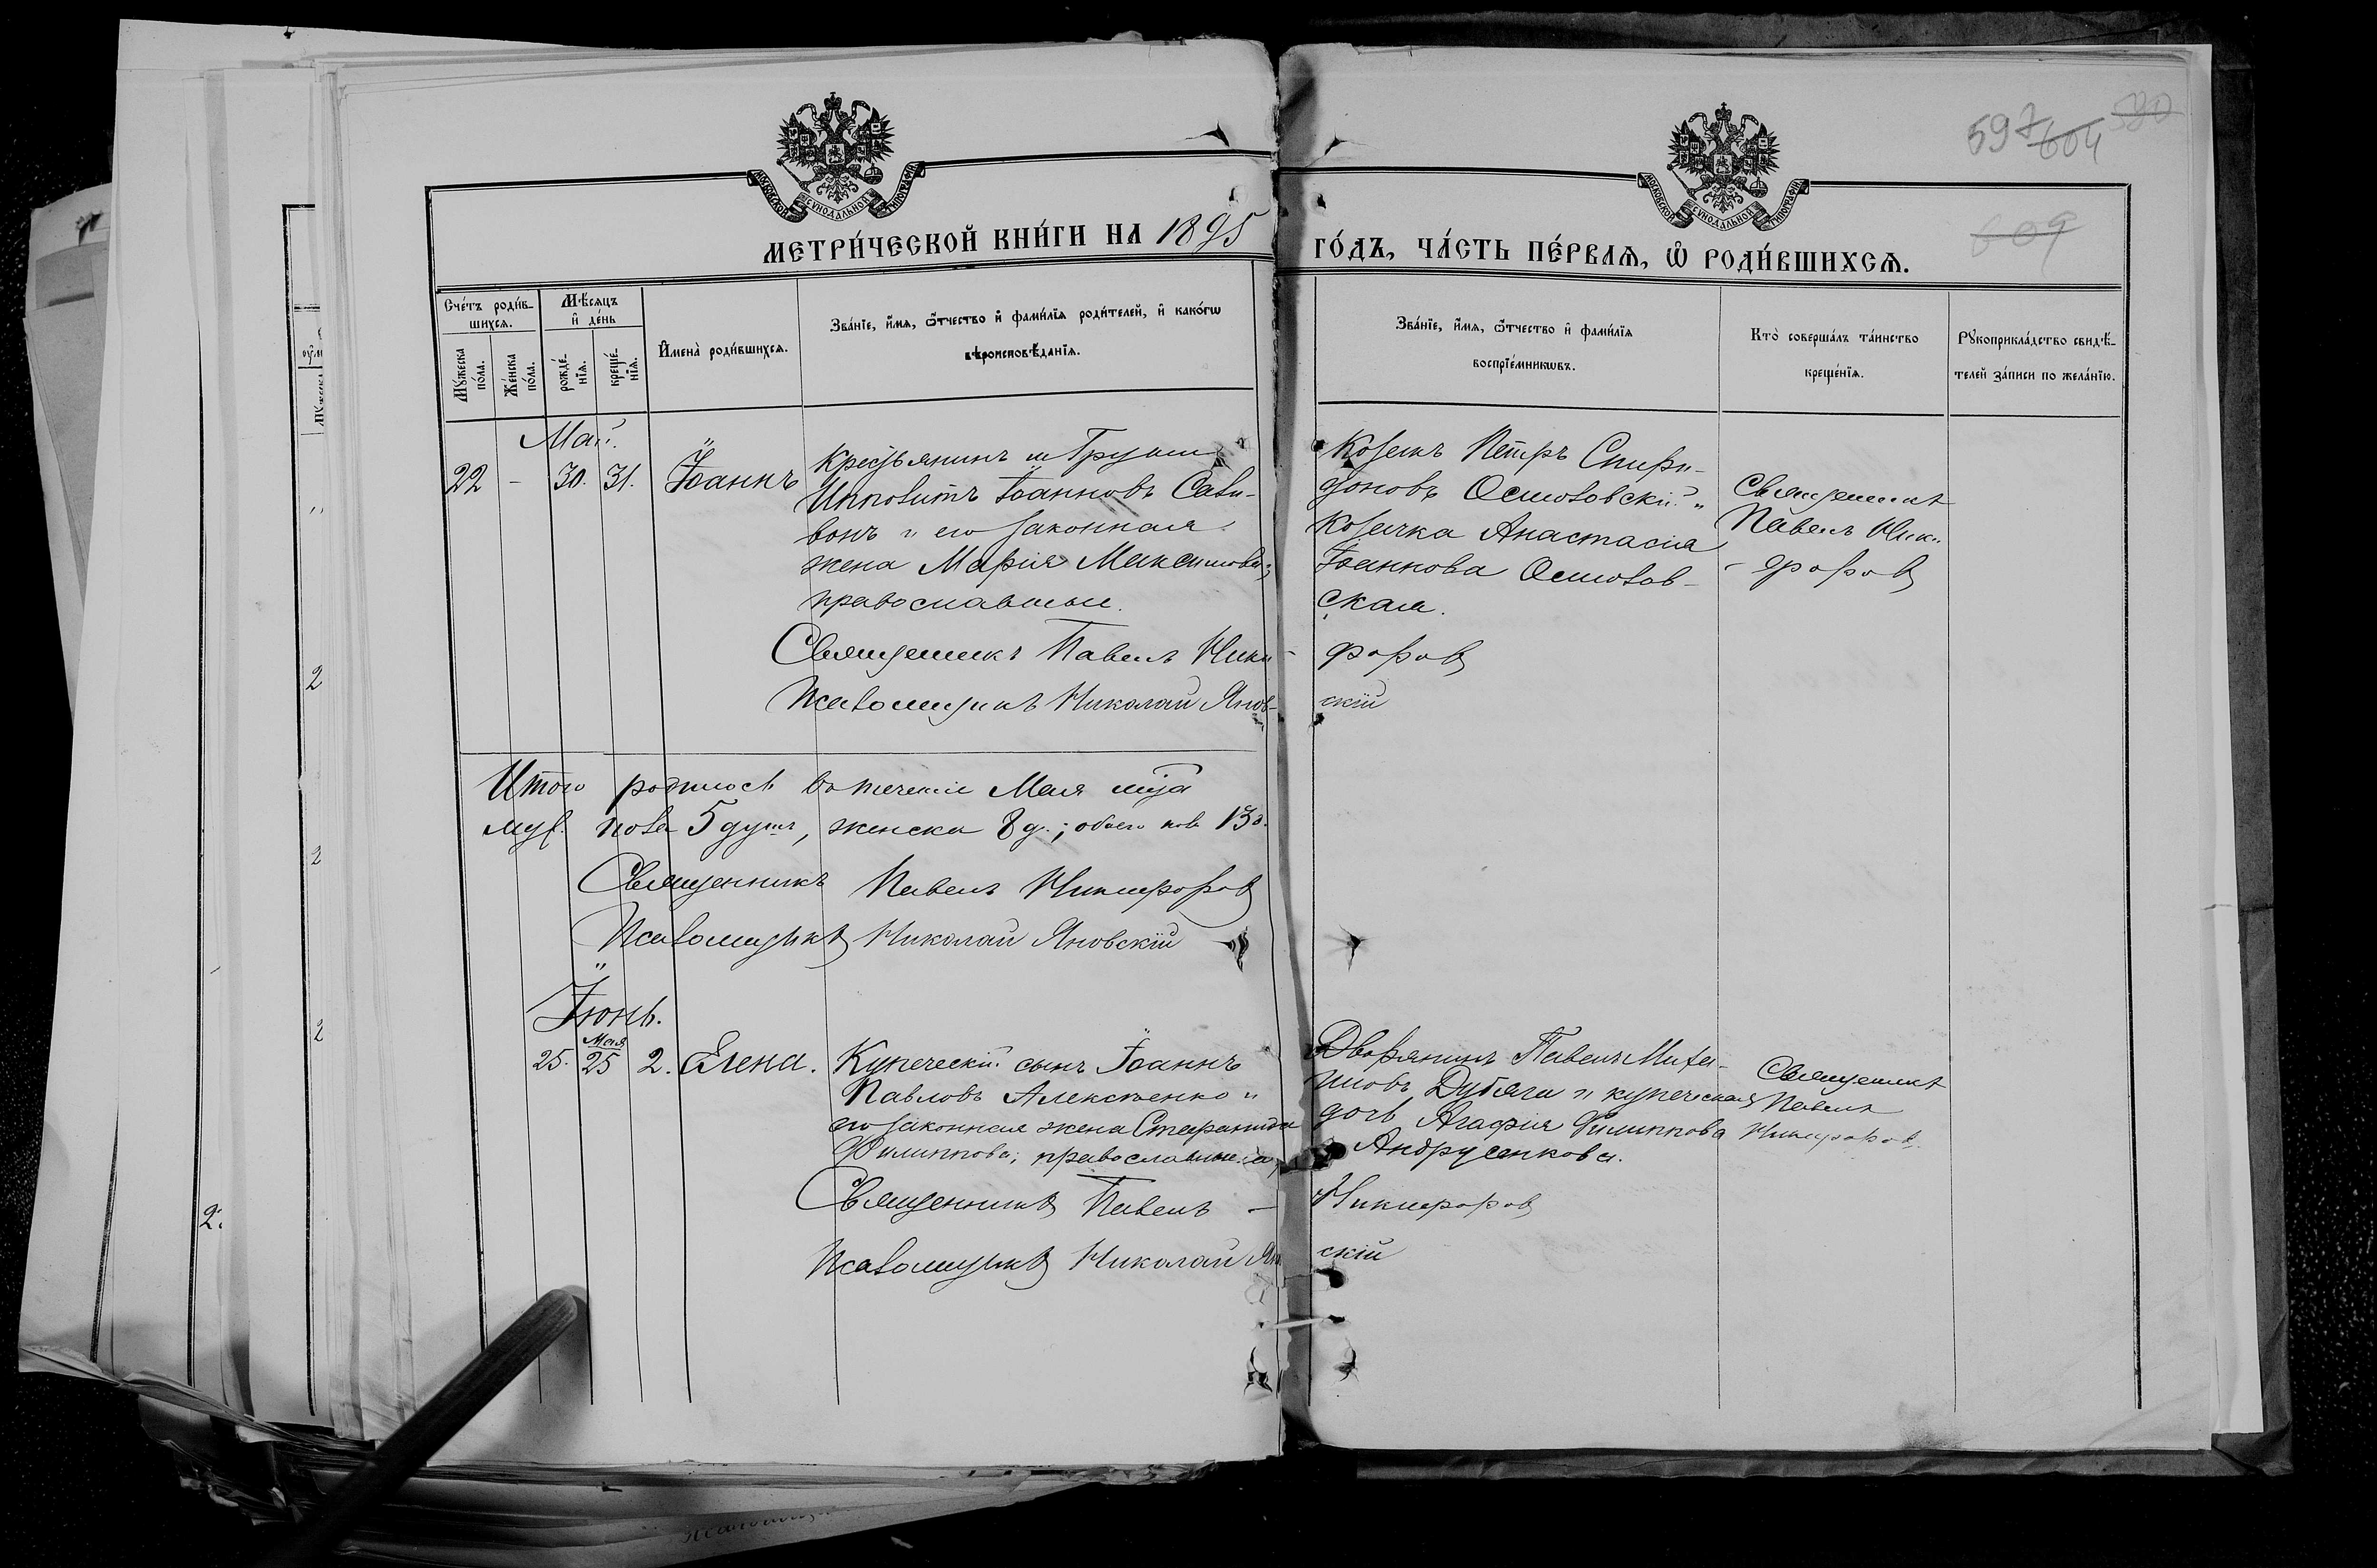 597 604 590
609
МОСКОВСКОЙ СѴНОДАЛЬНОЙ ТИПОГРАФІИ
МОСКОВСКОЙ СѴНОДАЛЬНОЙ ТИПОГРАФІИ
МЕТРИ́ЧЕСКОЙ КНИ́ГИ НА 1895 ГО́ДЪ, ЧА́СТЬ ПЕ́РВАЯ, Ѡ҆ РОДИ́ВШИХСѦ.
Сче́тъ роди́в-
шихсѧ.
Мѣ́сѧцъ
и҆ де́нь
Мꙋ́жеска
по́ла.
Же́нска
по́ла.
рожде́-
нїѧ.
креще́-
нїѧ.
И҆мена̀ роди́вшихсѧ.
Зва́нїе, и҆́мѧ, ѻ҆́тчество и҆ фами́лїѧ роди́телей, и҆ како́гѡ
вѣроисповѣ́данїѧ.
Зва́нїе, и҆́мѧ, ѻ҆́тчество и҆ фами́лїѧ
воспрїе́мникѡвъ.
Кто̀ соверша́лъ та́инство
креще́нїѧ.
Рꙋкоприкла́дство свидѣ́-
телей за́писи по жела́нїю.
Май.
22 - 30. 31. Іоаннъ
Крестьянинъ м. Груни
Ипполитъ Іоанновъ Сави-
вонъ и его законная
жена Марія Максимова;
православные.
Козакъ Петръ Спири-
доновъ Осмоловскій и
Козачка Анастасія
Іоаннова Осмолов-
ская.
Священникъ
Павелъ Ники-
форовъ
Священникъ Павелъ Ники- форовъ
Псаломщикъ Николай Янов- скій
Итого родилось въ теченіе Мая м-ца
муж. пола 5 душъ, женска 8 д.; обоего пола 13 д.
Священникъ Павелъ Никифоровъ
Псаломщикъ Николай Яновскій
Іюнь.
Мая
25. 25 2. Елена.
Купеческій сынъ Іоаннъ
Павловъ Алексѣенко и
его законная жена Стефанида
Филиппова; православные.
Дворянинъ Павелъ Михаи-
ловъ Дубяга и купеческая
дочь Агафія Филиппова
Андрусенкова.
Священникъ
Павелъ
Никифоровъ
Священникъ Павелъ - Никифоровъ
Псаломщикъ Николай Янов скій